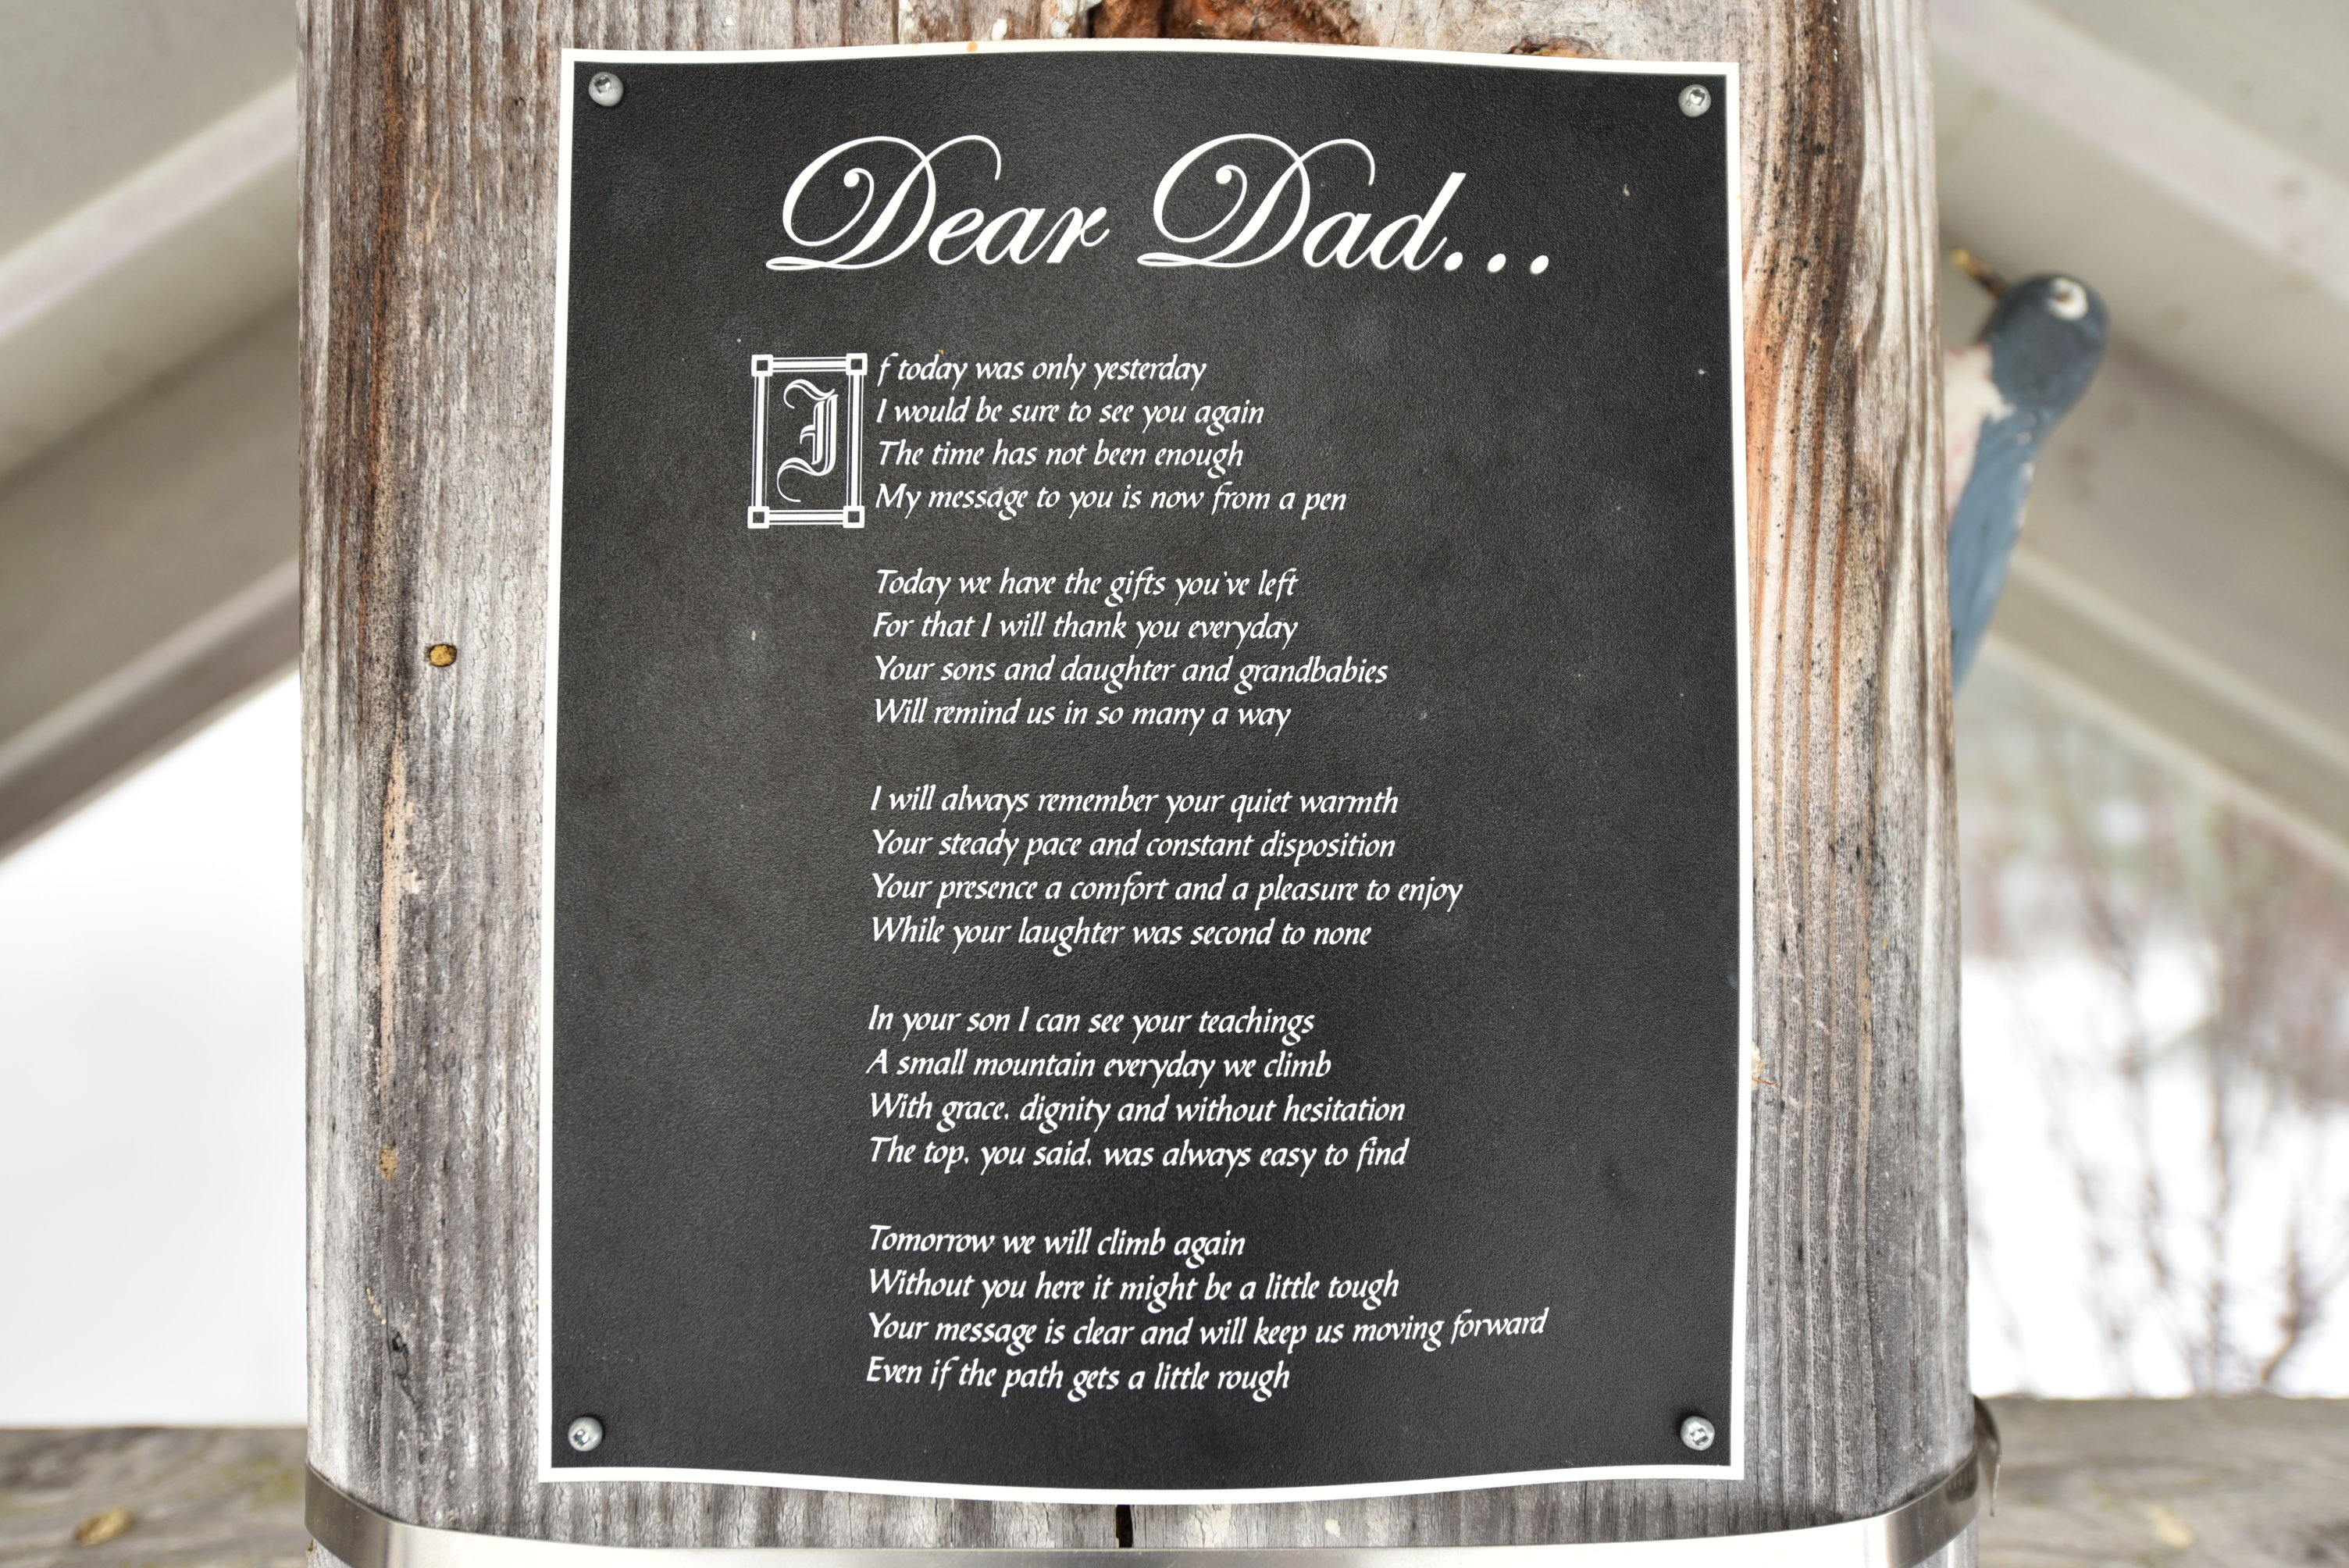 Dear Dad...
If today was only yesterday
I would be sure to see you again
The time has not been enough
My message to you is now from a pen
Today we have the gifts you've left
For that I will thank you everyday
Your sons and daughter and grandbabies
Will remind us in so many a way
I will always remember your quiet warmth
Your steady pace and constant disposition
Your presence a comfort and a pleasure to enjoy
While your laughter was second to none
In your son I can see your teachings
A small mountain everyday we climb
With grace, dignity and without hesitation
The top, you said, was always easy to find
Tomorrow we will climb again
Without you here it might be a little tough
Your message is clear and will keep us moving forward
Even if the path gets a little rough